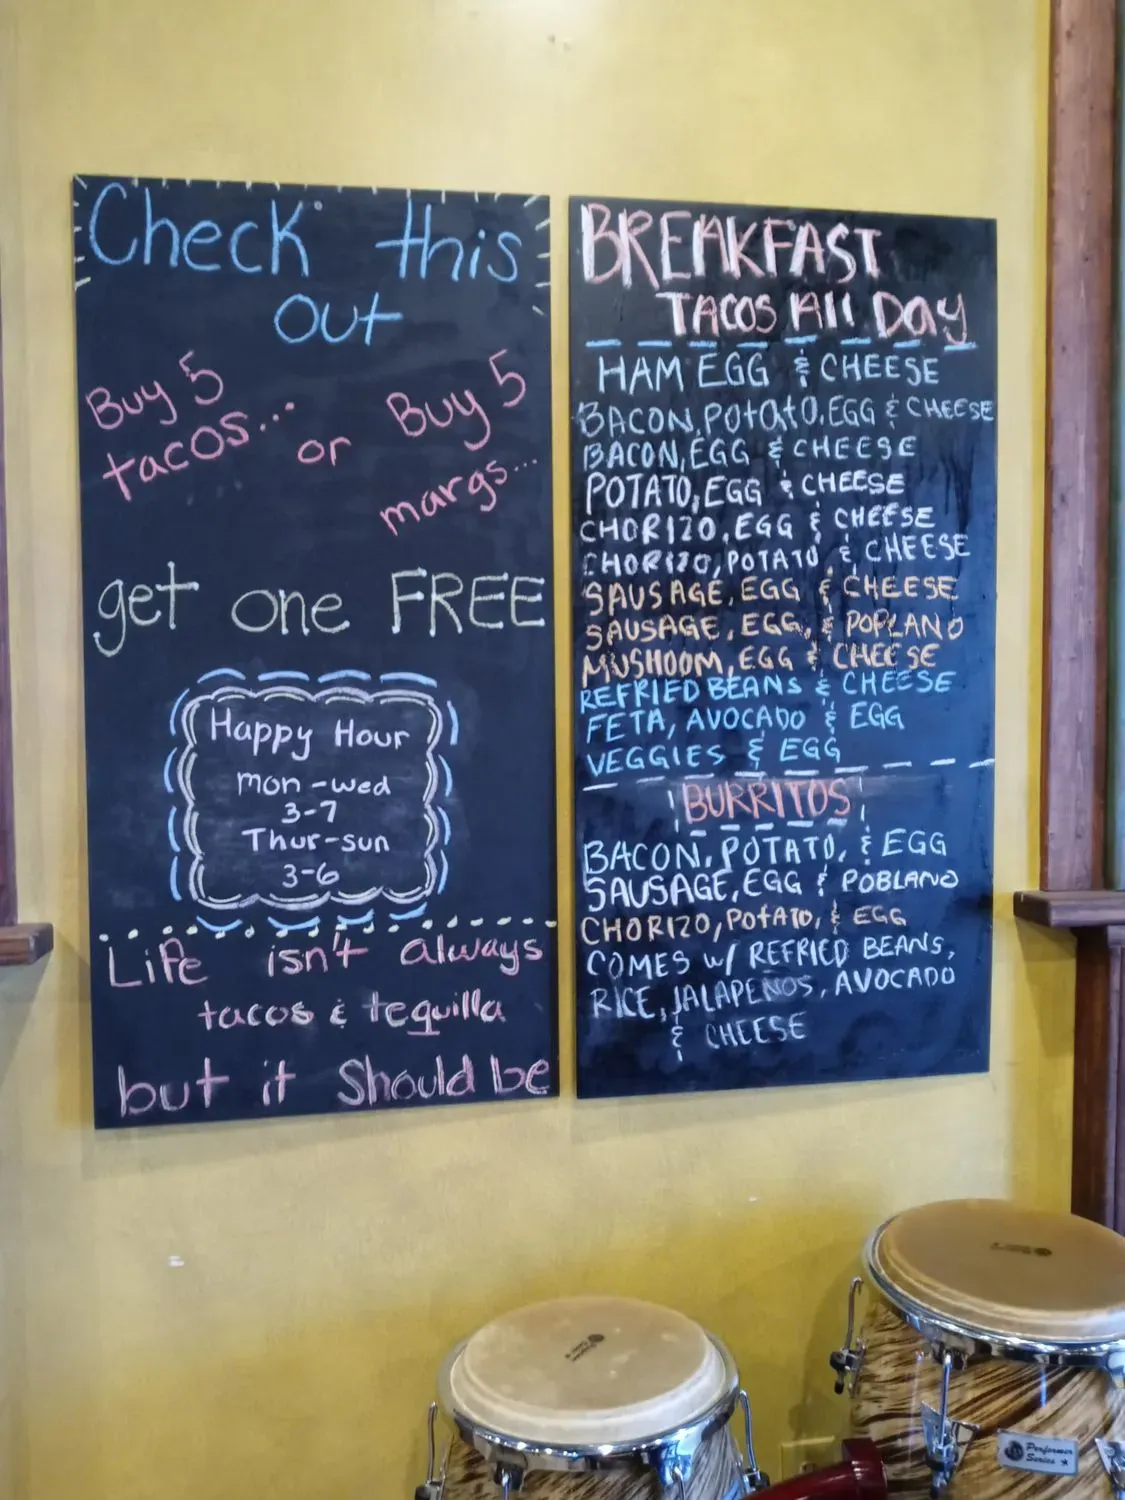 Check this
out
Buy 5
tacos...
or
Buy 5
margs...
get one FREE
Happy Hour
mon-wed
3-7
Thur-sun
3-6
Life isn't always
tacos & tequilla
but it should be
BREAKFAST
TACOS All Day
HAM EGG & CHEESE
BACON, POtatO, EGG & CHEESE
BACON, EGG & CHEESE
POTATO, EGG & CHEESE
CHORIZO, EGG & CHEESE
CHORIZO, POTATO, & CHEESE
SAUSAGE, EGG & CHEESE
SAUSAGE, EGG, & POPLANO
MUSHOOM, EGG & CHEESE
REFRIED BEANS & CHEESE
FETA, AVOCADO & EGG
VEGGIES & EGG
BURRITOS
BACON, POTATO, & EGG
SAUSAGE, EGG & POBLANO
CHORIZO, POtATO, & EGG
COMES w/ REFRIED BEANS,
RICE, JALAPEÑOS, AVOCADO
& CHEESE
Performer
Series